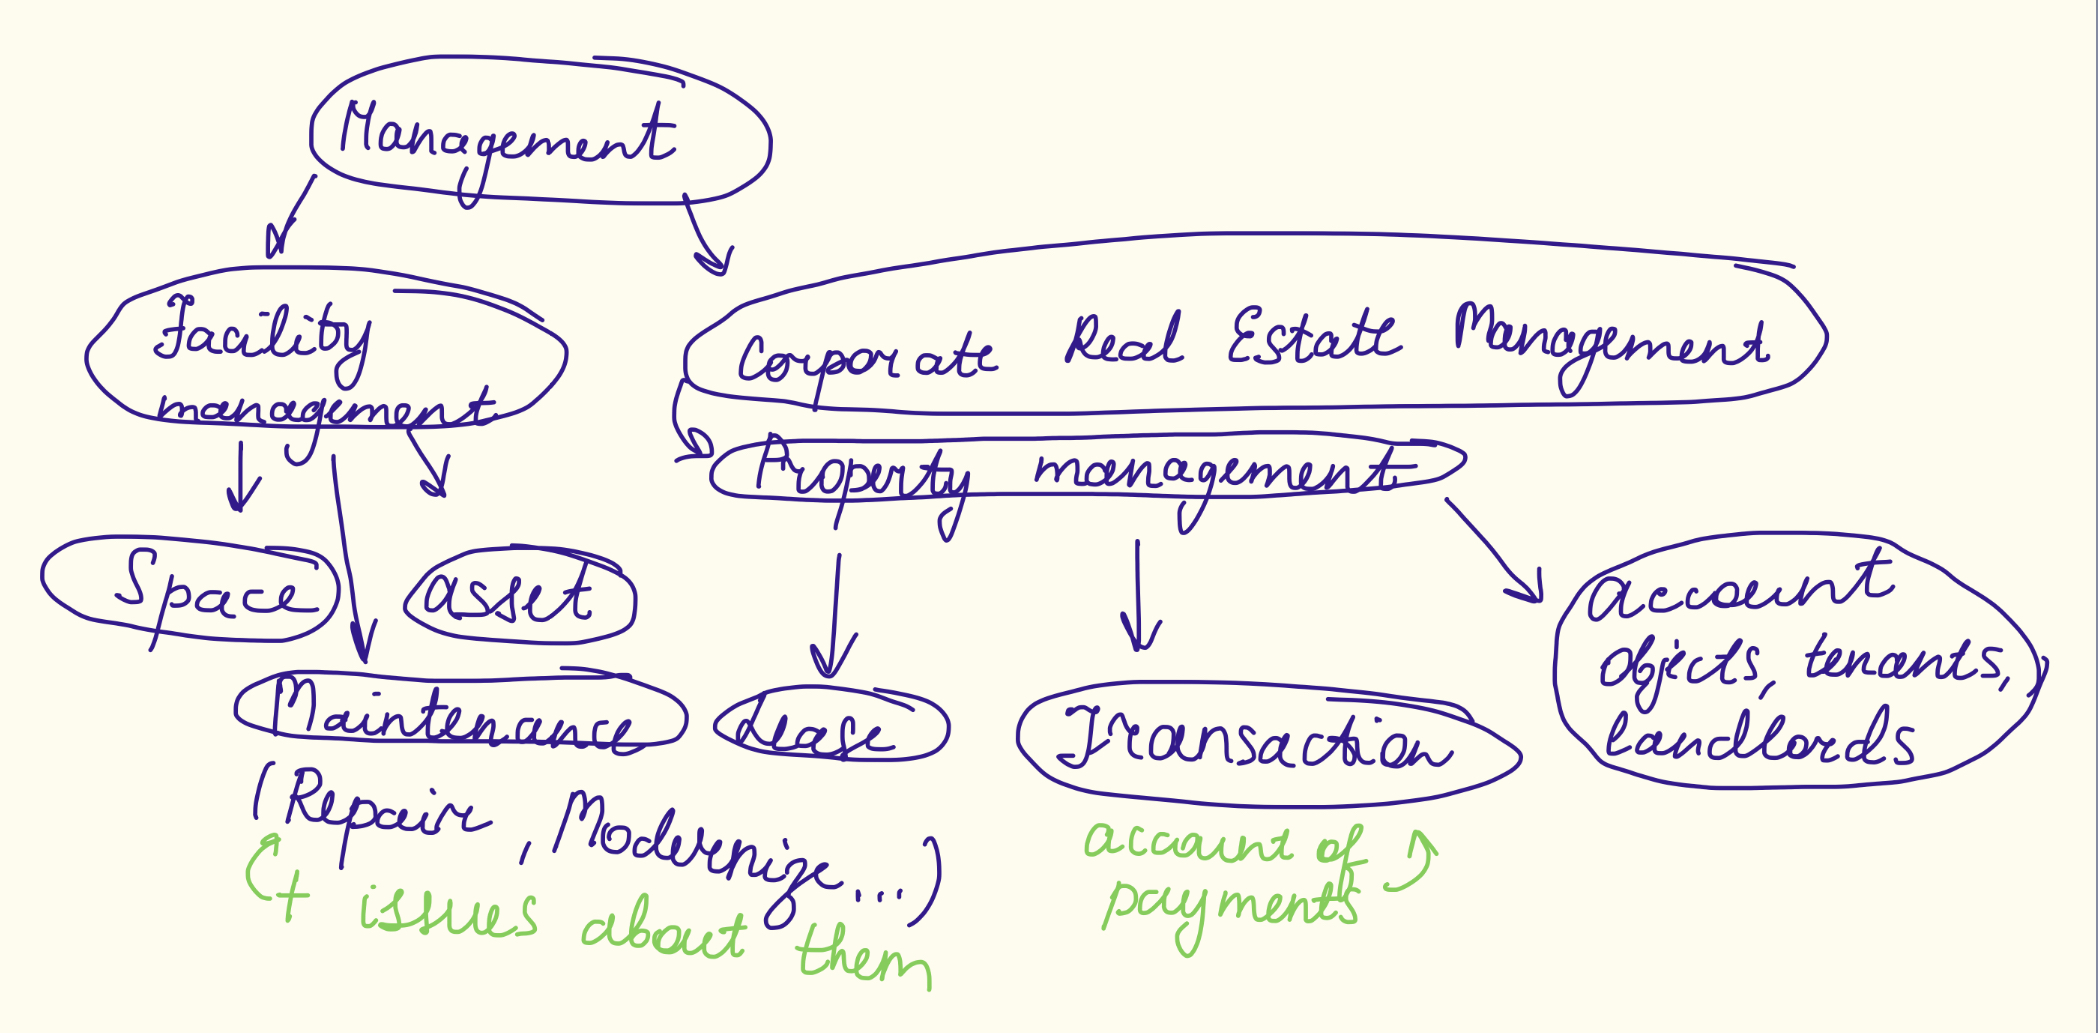 Management
Facility
management
Corporate Real Estate Management
Property management
Space
asset
Maintenance
(Repair, Modernize...)
+ issues about them
Lease
Transaction
account of
payments
account
objects, tenants,
landlords